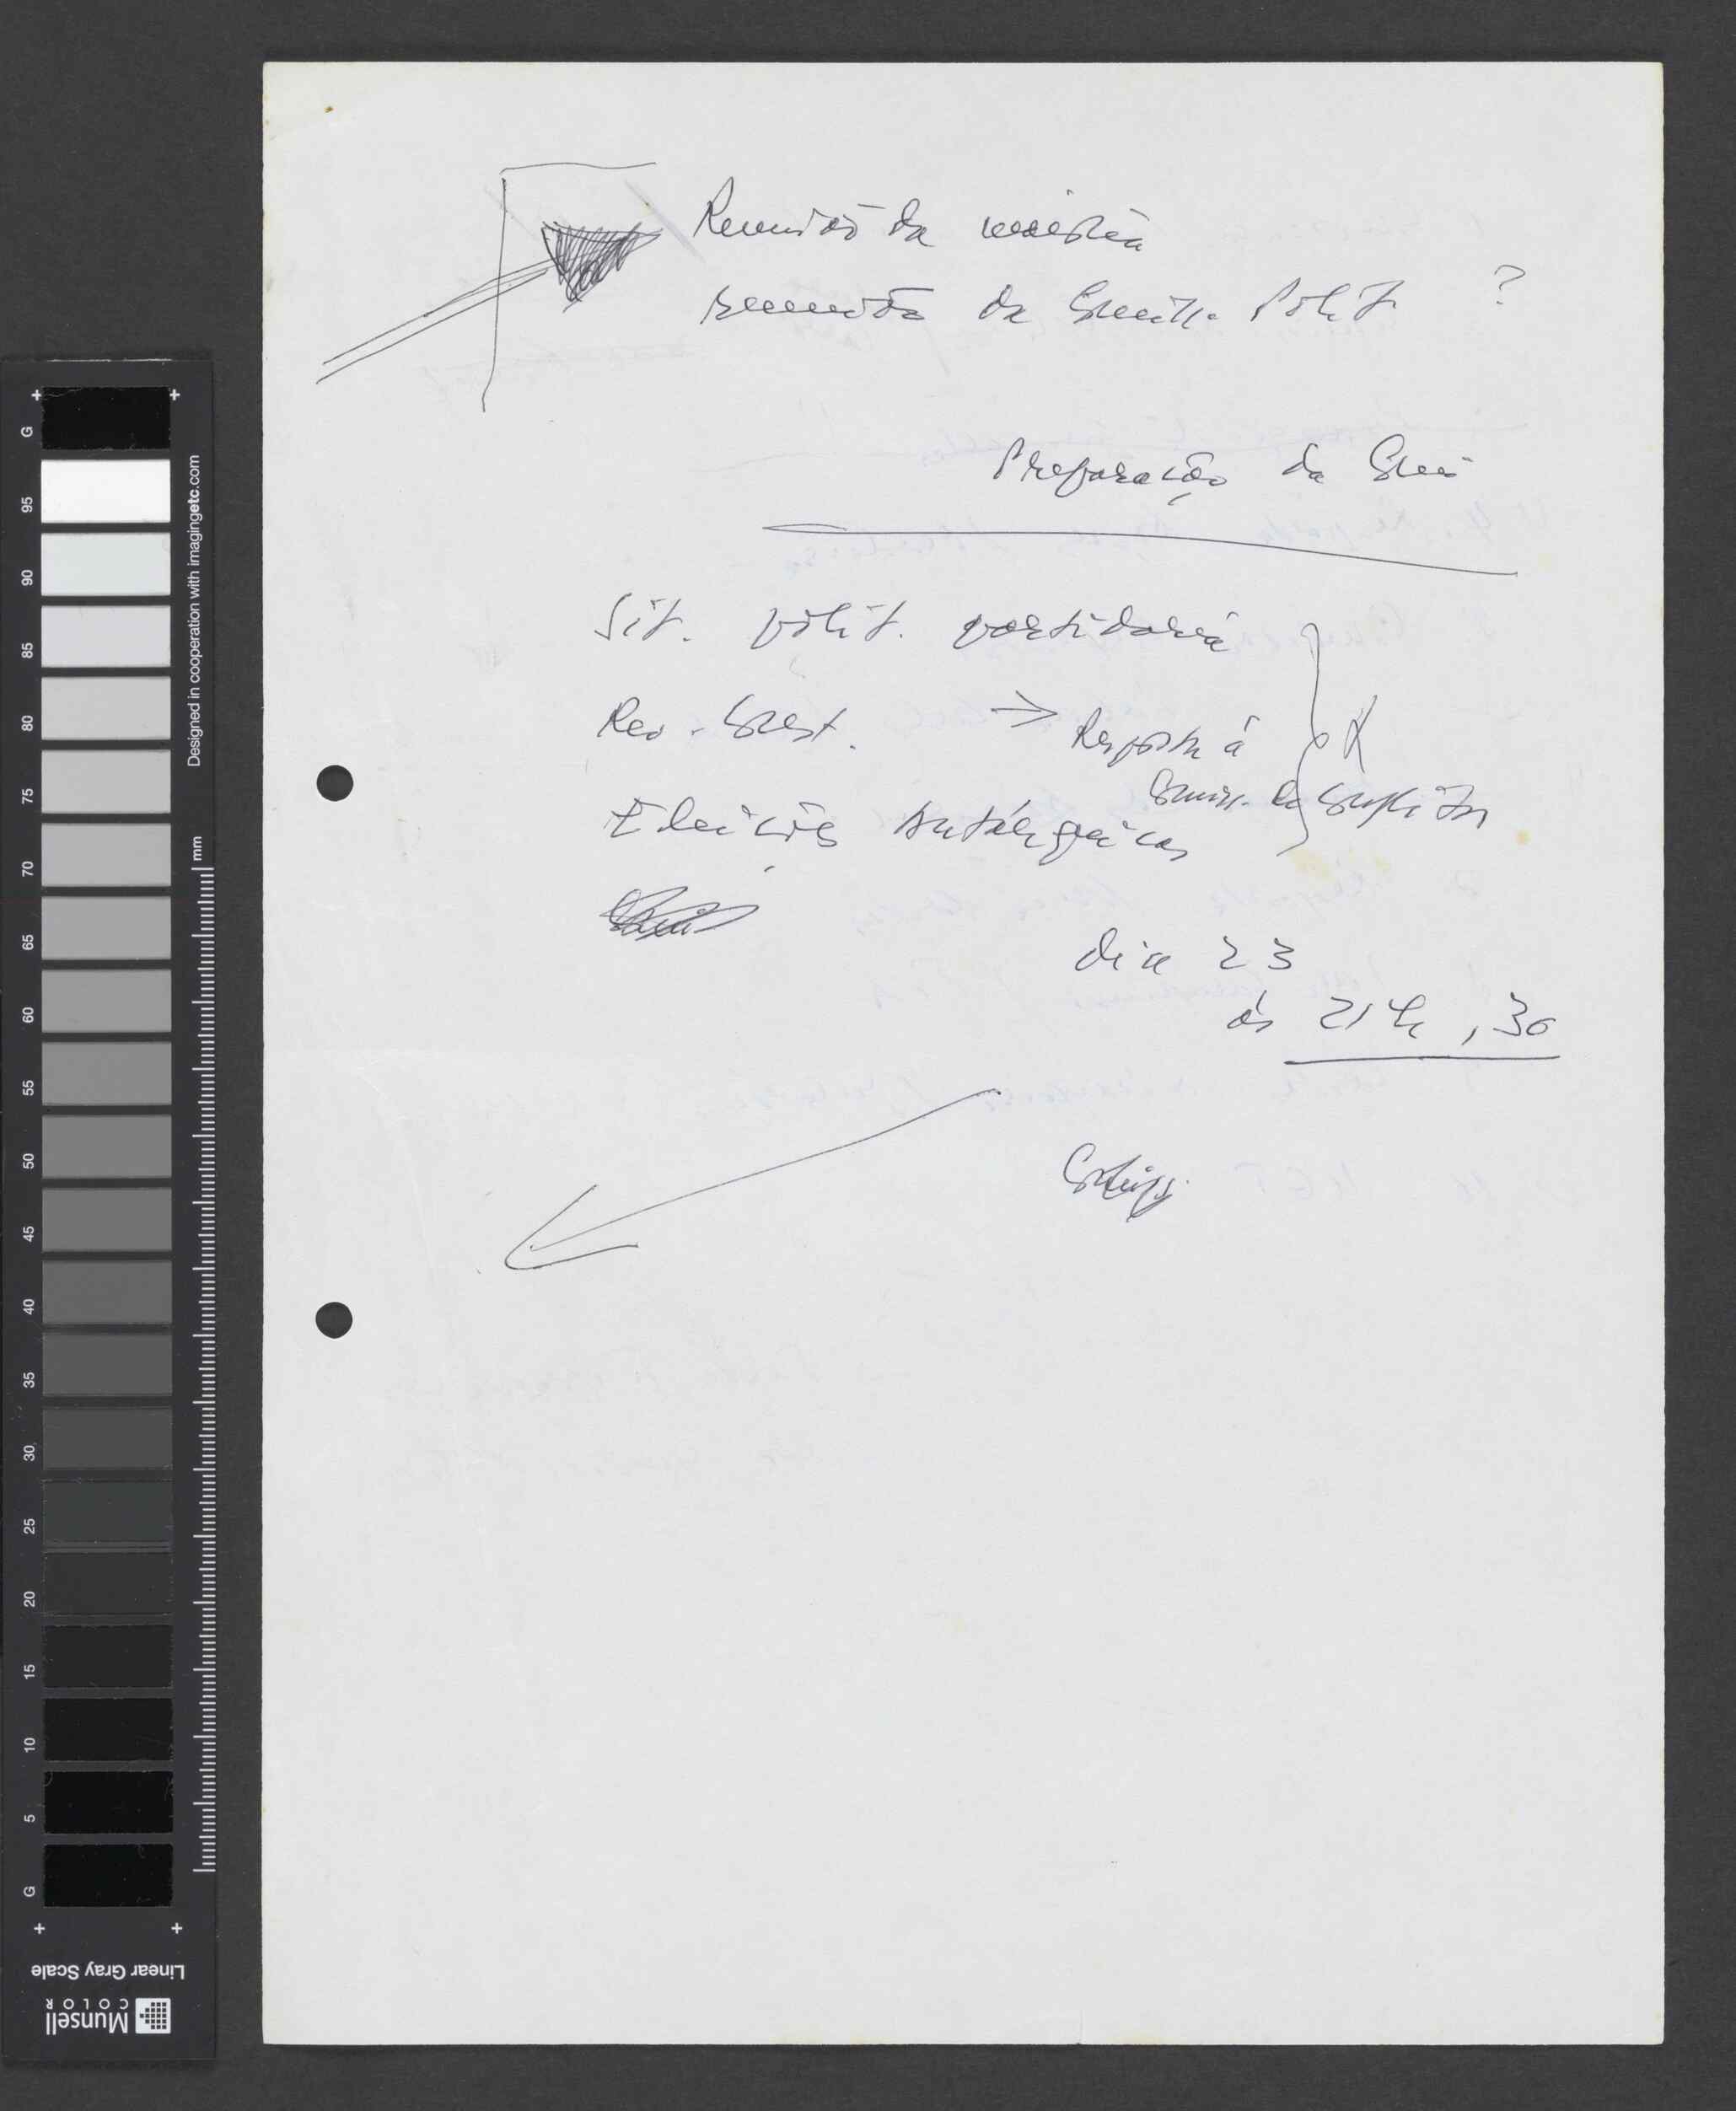 Reunião da maioria
reunião da Comiss. Polit ?
Preparação da
Sit. polit. partidária
Rev. Const. → Resposta à
Comiss. de
Eleições Autárquicas
dia 23
às 21h, 30
G
95
90
85
80
75
70
65
60
55
50
45
40
35
30
25
20
15
10
5
G
mm
Designed in cooperation with imagingetc.com
Linear Gray Scale
Munsell
COLOR